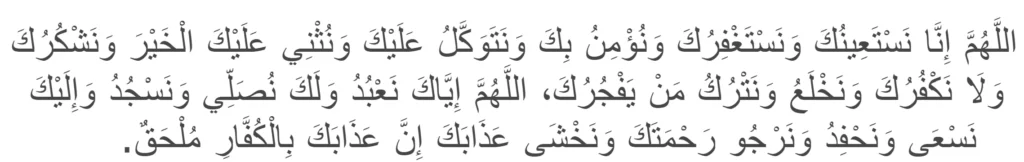 اللَّهُمَّ إِنَّا نَسْتَعِينُكَ وَنَسْتَغْفِرُكَ وَنُؤْمِنُ بِكَ وَنَتَوَكَّلُ عَلَيْكَ وَنُثْنِي عَلَيْكَ الْخَيْرَ وَنَشْكُرُكَ
وَلَا نَكْفُرُكَ وَنَخْلَعُ وَنَتْرُكُ مَنْ يَفْجُرُكَ، اللَّهُمَّ إِيَّاكَ نَعْبُدُ وَلَكَ نُصَلِّي وَنَسْجُدُ وَإِلَيْكَ
نَسْعَى وَنَحْفِدُ وَنَرْجُو رَحْمَتَكَ وَنَخْشَى عَذَابَكَ إِنَّ عَذَابَكَ بِالْكُفَّارِ مُلْحَقٌ.